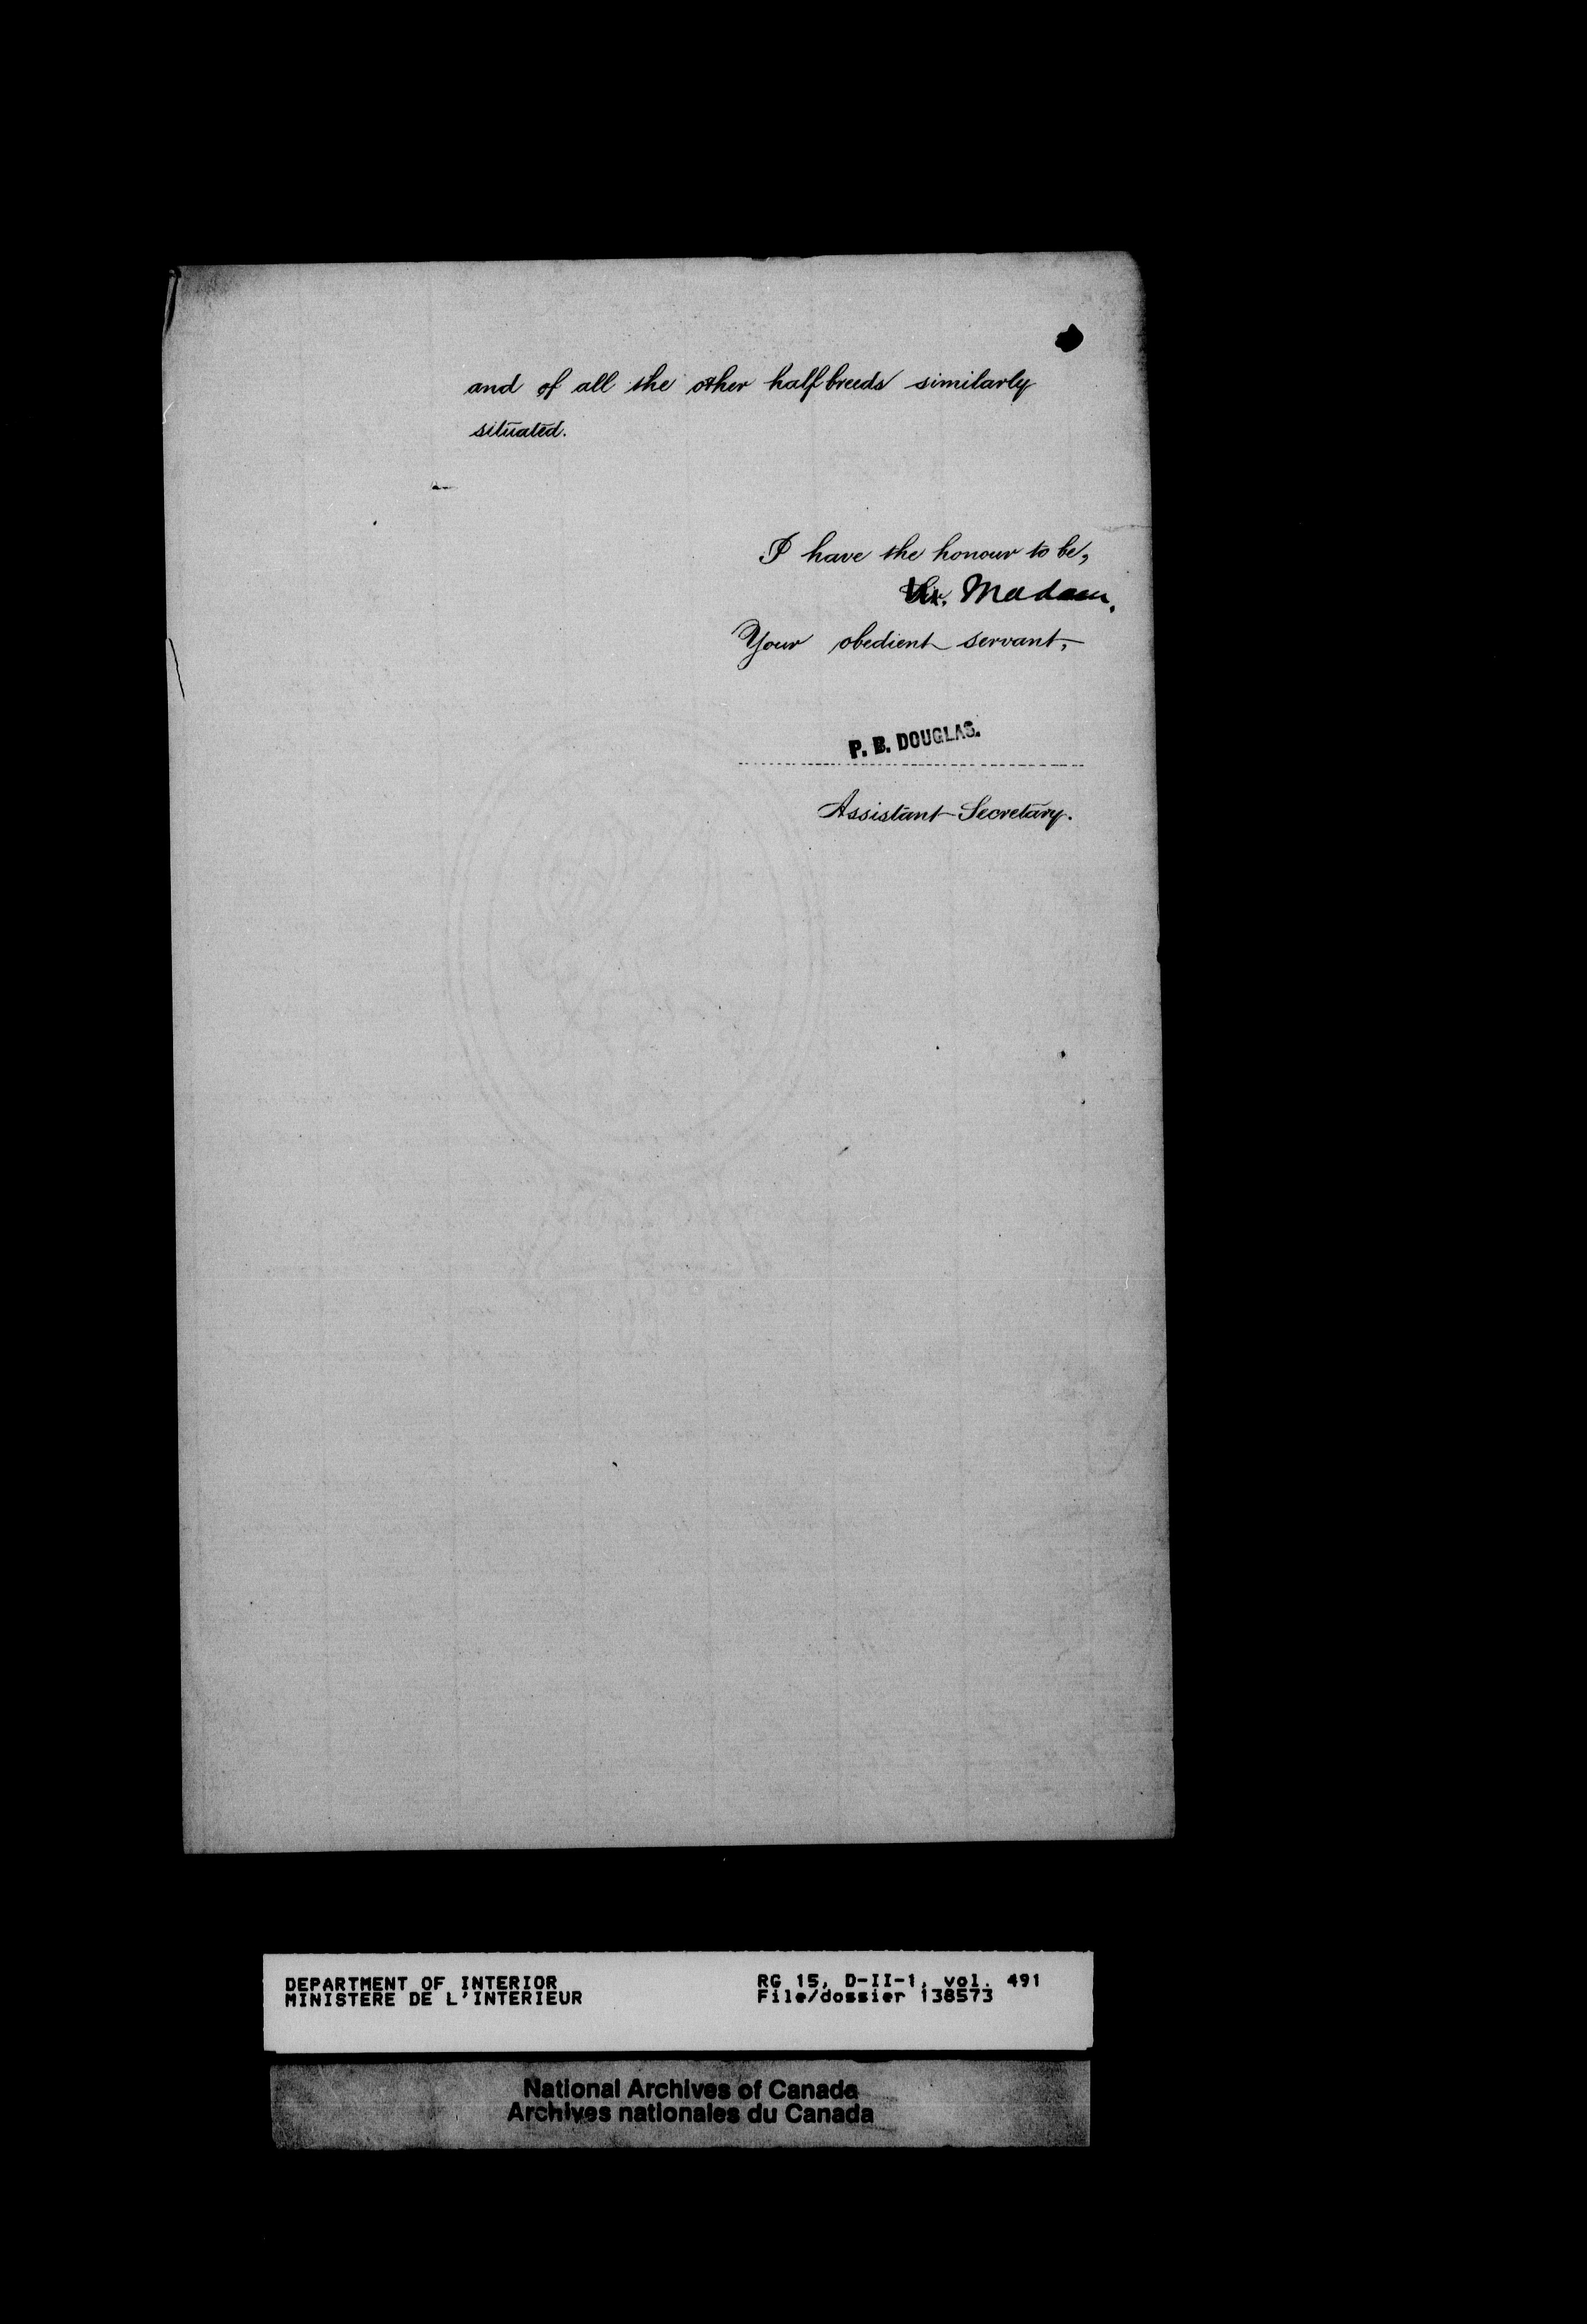 and of all the other halfbreeds similarly
situated.
I have the honour to be,
Sir, Madam,
Your obedient servant,
P. B. DOUGLAS.
Assistant Secretary.
DEPARTMENT OF INTERIOR
MINISTERE DE L'INTERIEUR
RG 15, D-II-1, vol. 491
File/dossier 138573
National Archives of Canada
Archives nationales du Canada